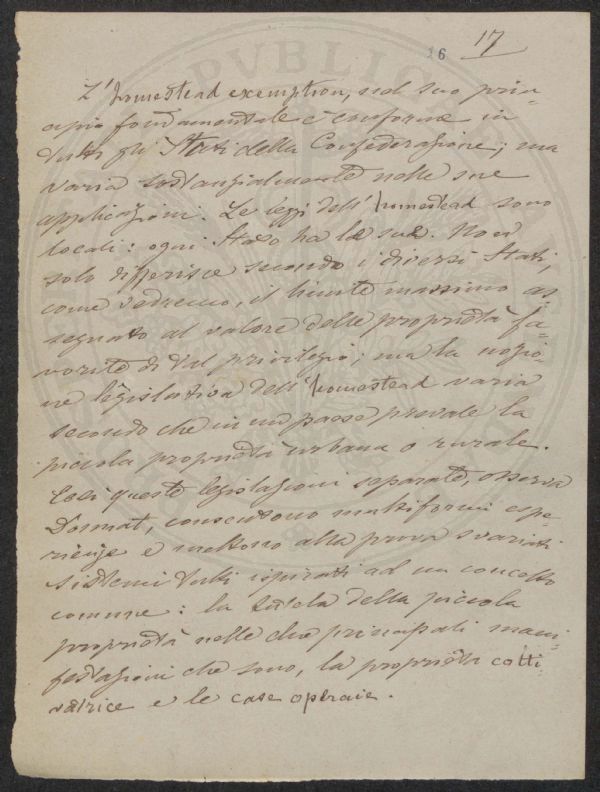 16 17
L'homestead exemption, nel suo prin-
cipio fondamentale è conforme in
tutti gli Stati della Confederazione; ma
varia sostanzialmente nelle sue
applicazioni. Le leggi dell'homestead sono
locali: ogni Stato ha le sue. Non
solo differisce secondo i diversi Stati,
come vedremo, il limite massimo as-
segnato al valore delle proprietà fa-
vorite di tal privilegio; ma la nozio-
ne legislativa dell'homestead varia
secondo che in un paese prevale la
piccola proprietà urbana o rurale.
Così queste legislazioni separate, osserva
Donnat, consentono multiformi espe-
rienze e mettono alla prova svariati
sistemi tutti ispirati ad un concetto
comune: la tutela della piccola
proprietà nelle due principali mani-
festazioni che sono, la proprietà colti-
vatrice e le case operaie.